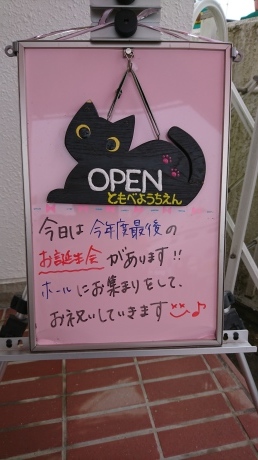 OPEN
ともべようちえん
今日は 今年度最後の
お誕生会 があります!!
ホールにお集まりをして、
お祝いしていきます